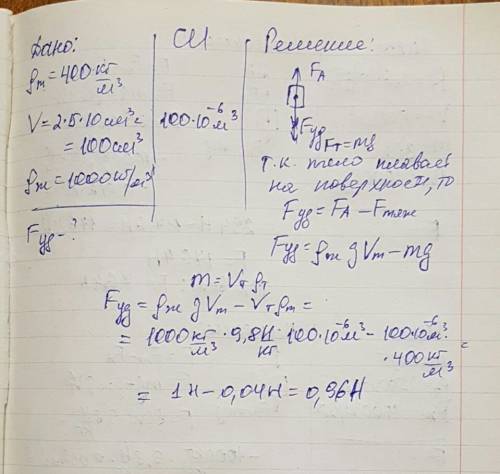 Дано:
ρт = 400 кг/м³
V = 2·5·10 см³ =
= 100 см³
ρж = 1000 кг/м³
Fуд - ?
СИ
100·10⁻⁶ м³
Решение:
FA
Fуд
Fт = mg
т.к. тело плавает
на поверхности, то
Fуд = FA − Fтяж
Fуд = ρж g Vт − mg
m = Vт ρт
Fуд = ρж g Vт − Vт ρт =
= 1000 кг/м³ · 9,8 Н/кг · 100·10⁻⁶ м³ − 100·10⁻⁶ м³ ·
· 400 кг/м³ =
= 1Н − 0,04Н = 0,96Н